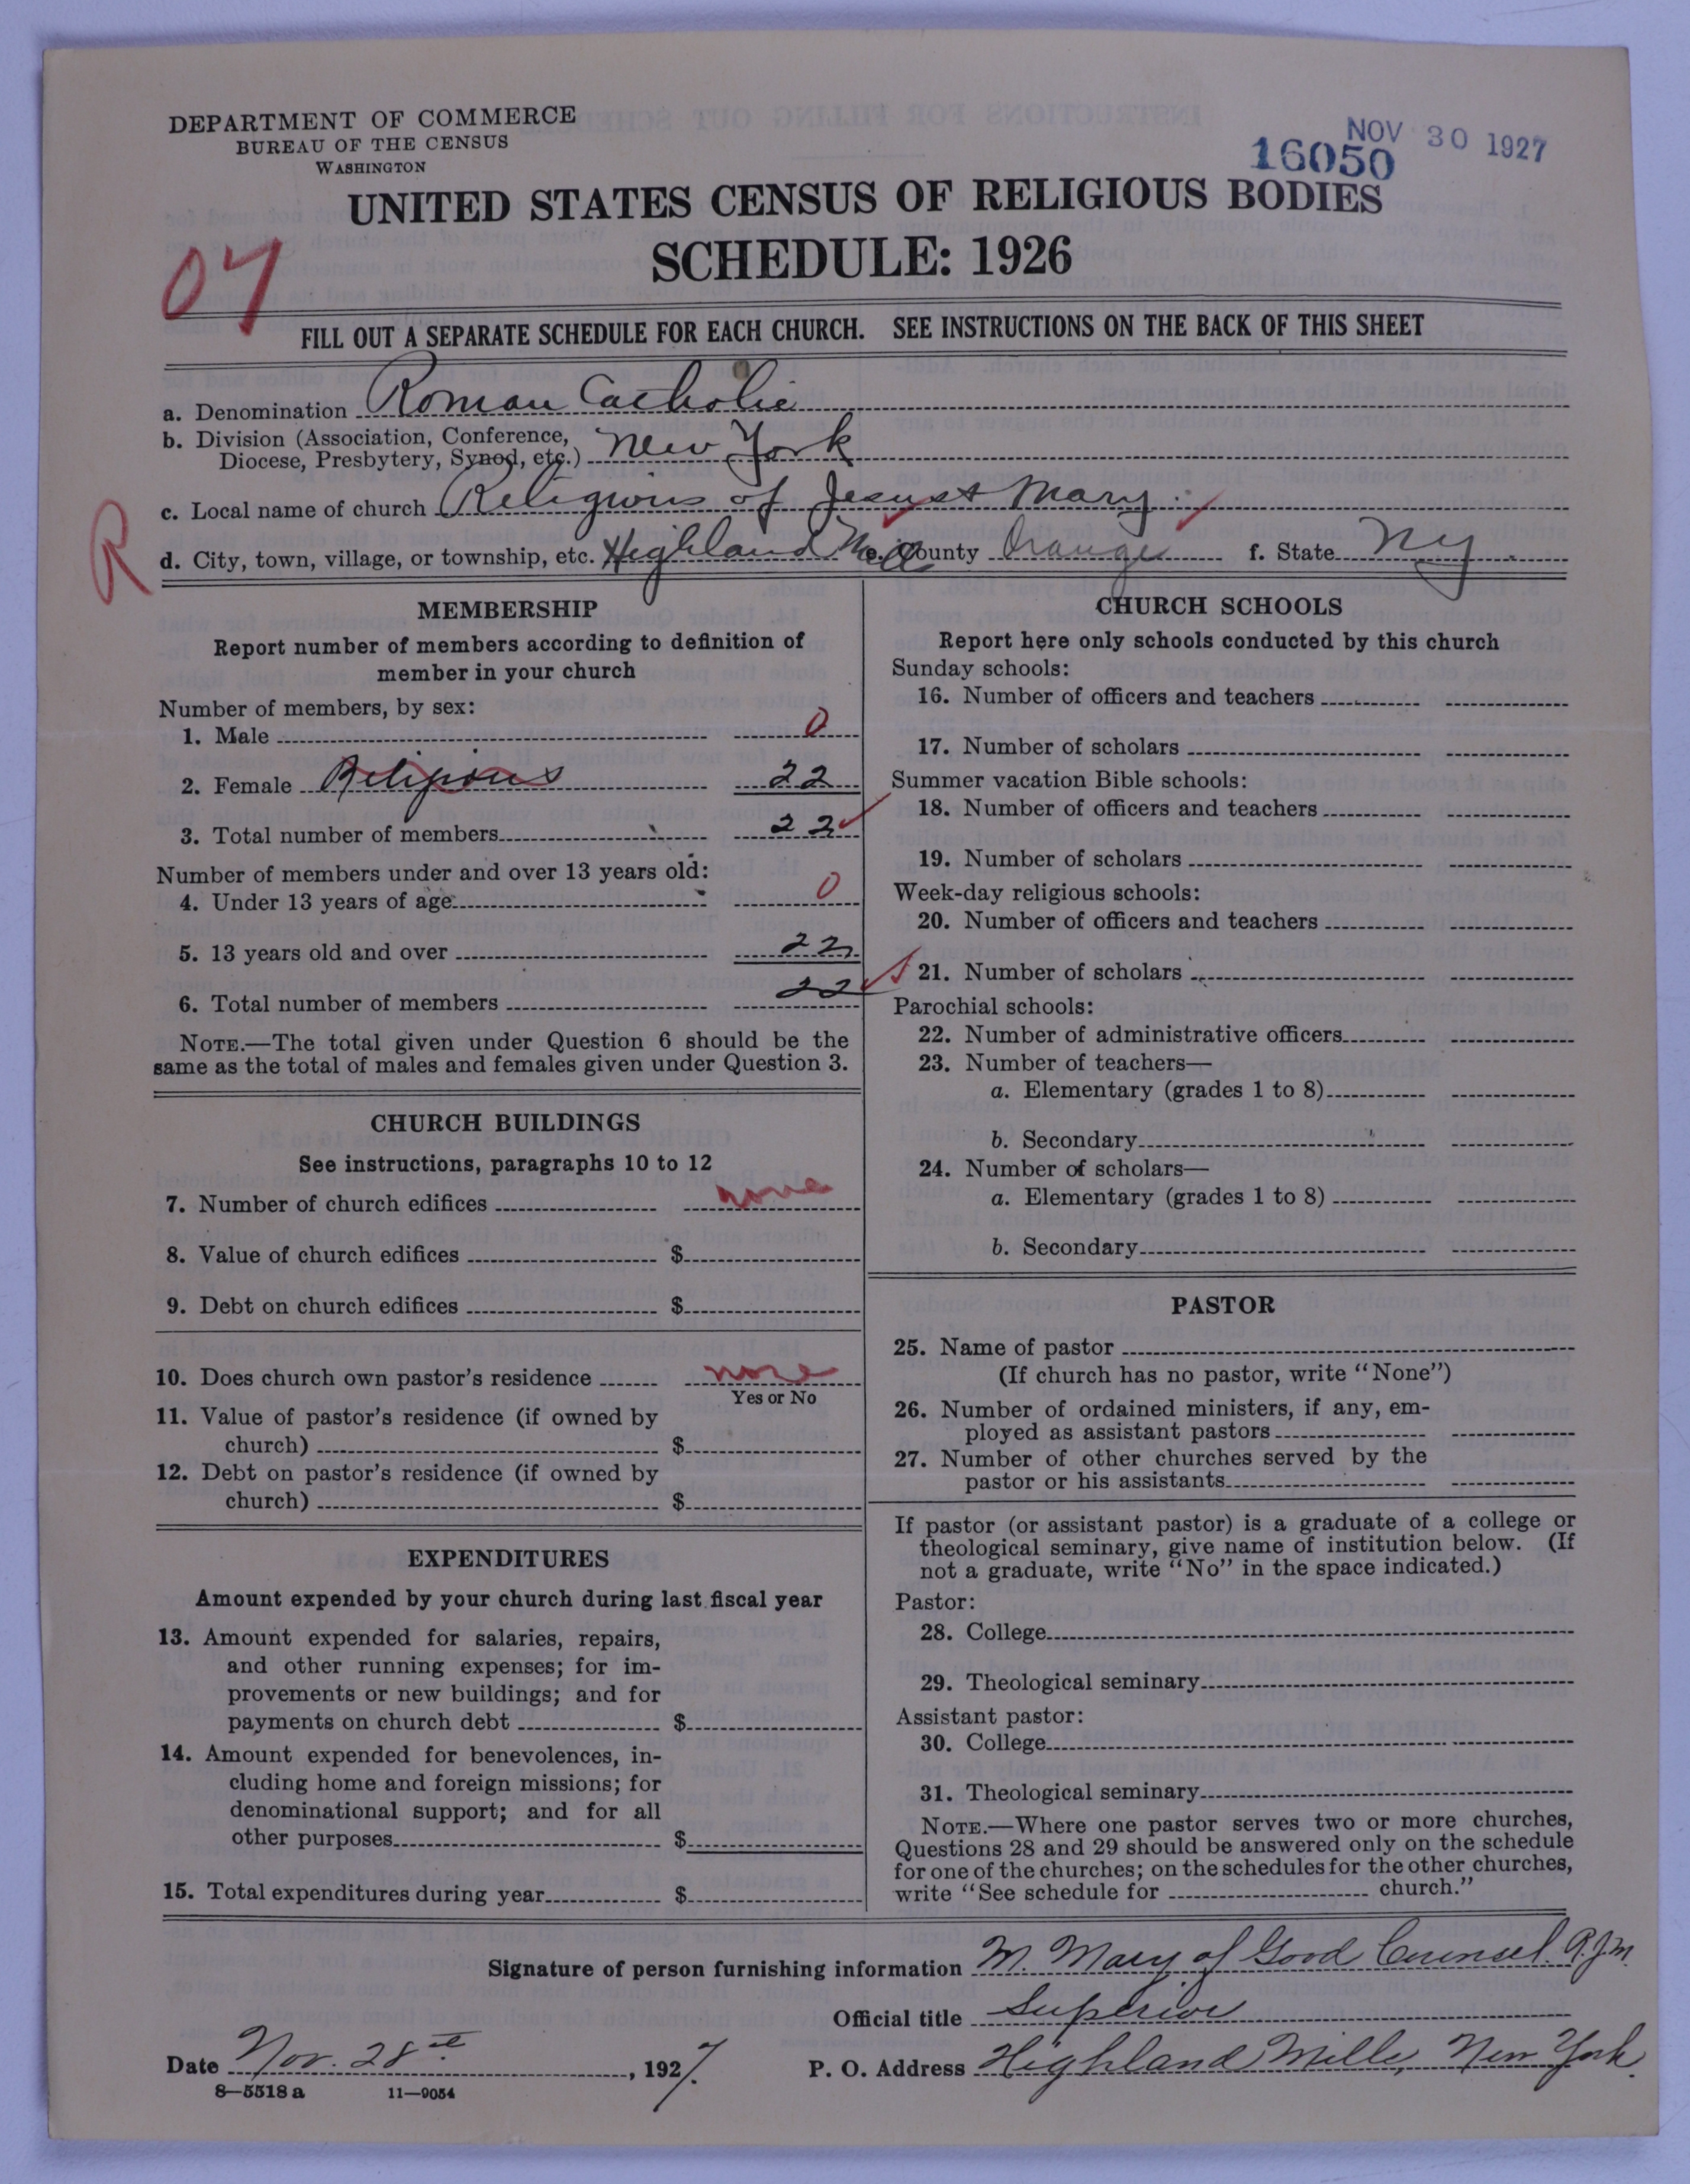 DEPARTMENT OF COMMERCE
BUREAU OF THE CENSUS
WASHINGTON
NOV 30 1927
16050
UNITED STATES CENSUS OF RELIGIOUS BODIES
SCHEDULE: 1926
04
FILL OUT A SEPARATE SCHEDULE FOR EACH CHURCH. SEE INSTRUCTIONS ON THE BACK OF THIS SHEET
a. Denomination Roman Catholic
b. Division (Association, Conference,
Diocese, Presbytery, Synod, etc.) New York
c. Local name of church Religious of Jesus & Mary.
R
d. City, town, village, or township, etc. Highland Mills e. County Orange f. State NY.
MEMBERSHIP
Report number of members according to definition of
member in your church
Number of members, by sex:
1. Male 0
2. Female Religious 22
3. Total number of members 22
Number of members under and over 13 years old:
4. Under 13 years of age 0
5. 13 years old and over 22
6. Total number of members 22
NOTE.—The total given under Question 6 should be the
same as the total of males and females given under Question 3.
CHURCH BUILDINGS
See instructions, paragraphs 10 to 12
7. Number of church edifices none
8. Value of church edifices $
9. Debt on church edifices $
10. Does church own pastor's residence none
Yes or No
11. Value of pastor's residence (if owned by
church) $
12. Debt on pastor's residence (if owned by
church) $
EXPENDITURES
Amount expended by your church during last fiscal year
13. Amount expended for salaries, repairs,
and other running expenses; for im-
provements or new buildings; and for
payments on church debt $
14. Amount expended for benevolences, in-
cluding home and foreign missions; for
denominational support; and for all
other purposes $
15. Total expenditures during year $
CHURCH SCHOOLS
Report here only schools conducted by this church
Sunday schools:
16. Number of officers and teachers
17. Number of scholars
Summer vacation Bible schools:
18. Number of officers and teachers
19. Number of scholars
Week-day religious schools:
20. Number of officers and teachers
21. Number of scholars
Parochial schools:
22. Number of administrative officers
23. Number of teachers—
a. Elementary (grades 1 to 8)
b. Secondary
24. Number of scholars—
a. Elementary (grades 1 to 8)
b. Secondary
PASTOR
25. Name of pastor
(If church has no pastor, write "None")
26. Number of ordained ministers, if any, em-
ployed as assistant pastors
27. Number of other churches served by the
pastor or his assistants
If pastor (or assistant pastor) is a graduate of a college or
theological seminary, give name of institution below. (If
not a graduate, write "No" in the space indicated.)
Pastor:
28. College
29. Theological seminary
Assistant pastor:
30. College
31. Theological seminary
NOTE.—Where one pastor serves two or more churches,
Questions 28 and 29 should be answered only on the schedule
for one of the churches; on the schedules for the other churches,
write "See schedule for church."
Signature of person furnishing information M. Mary of Good Counsel. R.J.M.
Official title Superior
Date Nov. 28th, 1927. P. O. Address Highland Mills, New York.
8—5518 a 11—9054